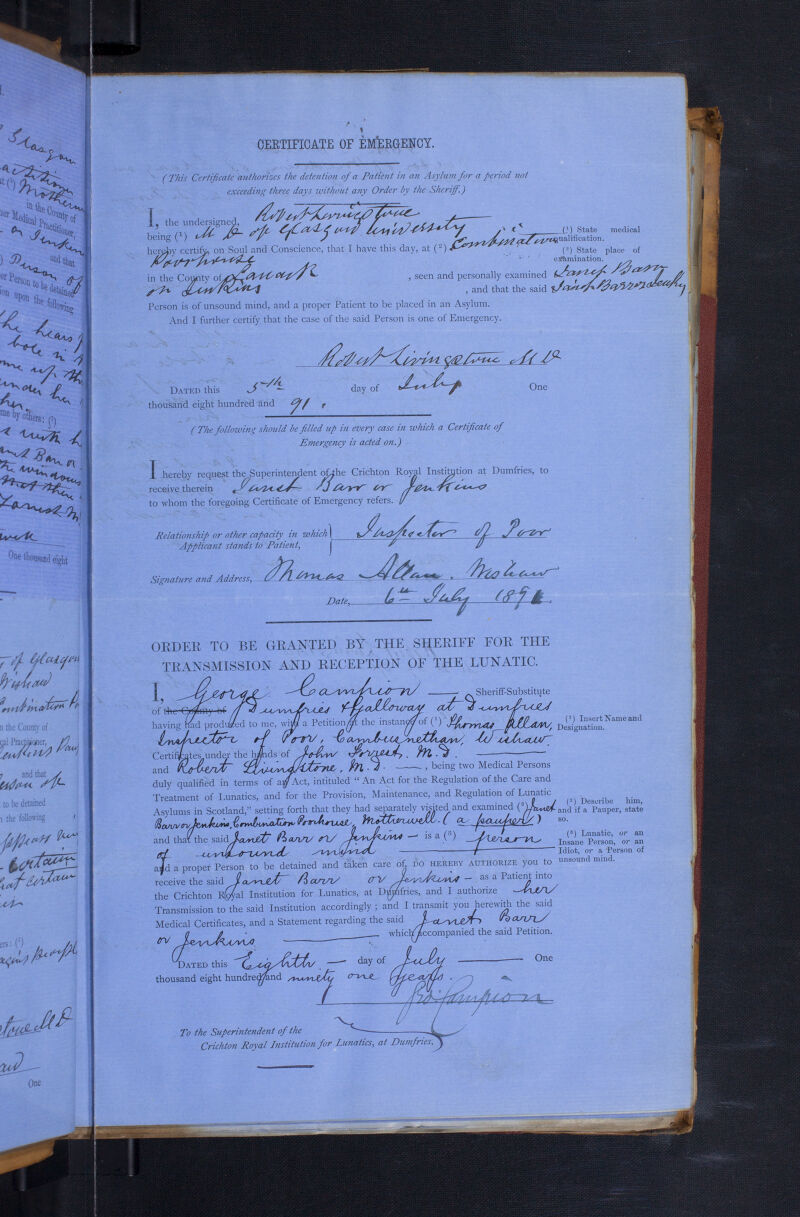 CERTIFICATE OF EMERGENCY.
(This Certificate authorizes the detention of a Patient in an Asylum for a period not
exceeding three days without any Order by the Sheriff.)
I, the undersigned, Robert Livingstone
being (¹) M D of Glasgow University
hereby certify, on Soul and Conscience, that I have this day, at (²) Combination
Poorhouse
in the County of Lanark, seen and personally examined Janet Barr
or Jenkins, and that the said Janet Barr or Jenkins
Person is of unsound mind, and a proper Patient to be placed in an Asylum.
And I further certify that the case of the said Person is one of Emergency.
(¹) State medical
qualification.
(²) State place of
examination.
Robert Livingstone M D
DATED this 5th day of July One
thousand eight hundred and 91.
(The following should be filled up in every case in which a Certificate of
Emergency is acted on.)
I hereby request the Superintendent of the Crichton Royal Institution at Dumfries, to
receive therein Janet Barr or Jenkins
to whom the foregoing Certificate of Emergency refers.
Relationship or other capacity in which
Applicant stands to Patient, } Inspector of Poor
Signature and Address, Thomas Allan. Wishaw
Date, 6th July 1891.
ORDER TO BE GRANTED BY THE SHERIFF FOR THE
TRANSMISSION AND RECEPTION OF THE LUNATIC.
I, George Campion — Sheriff-Substitute
of the County of Dumfries & Galloway at Dumfries
having had produced to me, with a Petition at the instance of (¹) Thomas Allan,
Inspector of Poor, Cambusnethan, Wishaw.
Certificates under the hands of John Forrest, M.D.
and Robert Livingstone, M.D. —, being two Medical Persons
duly qualified in terms of an Act, intituled "An Act for the Regulation of the Care and
Treatment of Lunatics, and for the Provision, Maintenance, and Regulation of Lunatic
Asylums in Scotland," setting forth that they had separately visited and examined (²) Janet
Barr or Jenkins, Combination Poorhouse, Motherwell. (a pauper)
and that the said Janet Barr or Jenkins — is a (³) person
of unsound mind
and a proper Person to be detained and taken care of, DO HEREBY AUTHORIZE you to
receive the said Janet Barr or Jenkins — as a Patient into
the Crichton Royal Institution for Lunatics, at Dumfries, and I authorize her
Transmission to the said Institution accordingly; and I transmit you herewith the said
Medical Certificates, and a Statement regarding the said Janet Barr
or Jenkins — which accompanied the said Petition.
(¹) Insert Name and
Designation.
(²) Describe him,
and if a Pauper, state
so.
(³) Lunatic, or an
Insane Person, or an
Idiot, or a Person of
unsound mind.
DATED this Eighth — day of July — One
thousand eight hundred and ninety one years.
Geo: Campion
To the Superintendent of the
Crichton Royal Institution for Lunatics, at Dumfries.